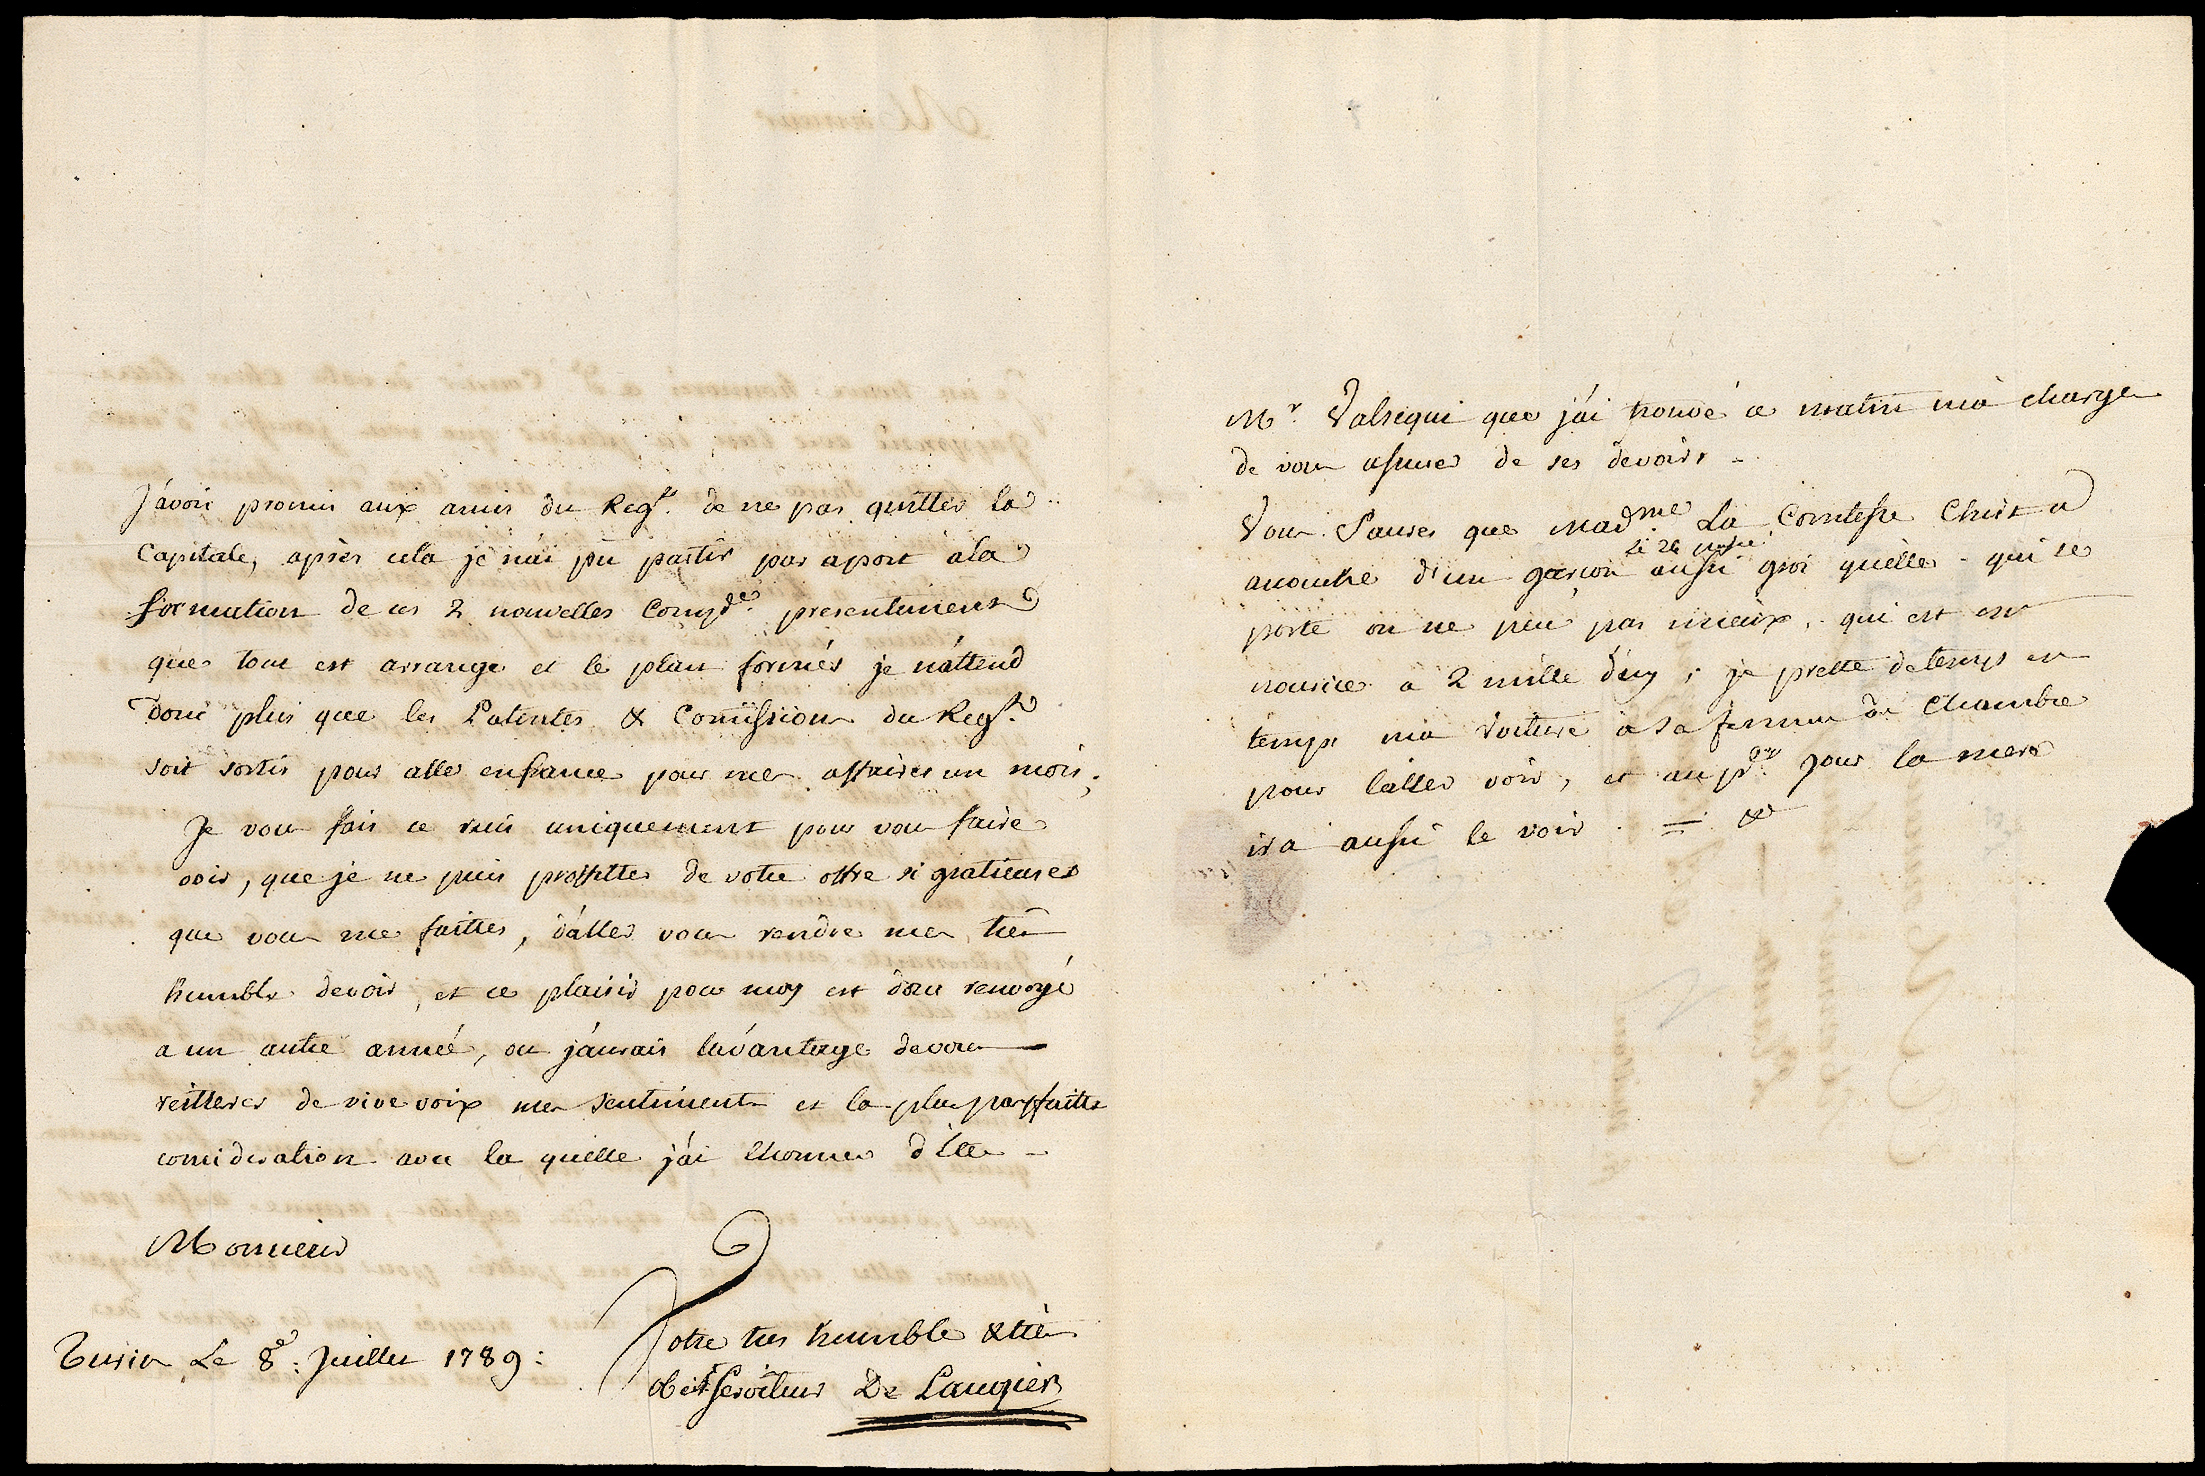 J'avois promis aux amis du Regt. de ne pas quitter la
Capitale, après cela je n'ai pu partir par aport a la
formation de ces 2 nouvelles Compde. presentement
que tout est arrange et le plan formés je n'attend
donc plus que les Patentes & Comission du Regt.
soit sortis pour alle enfrance pour mes affaires un mois;
Je vous fais ce recis uniquement pour vous faire
voir, que je ne puis proffitter de votre offre si gratieuses
que vous me faittes, d'aller vous rendre mes très
humble devoir, et ce plaisir pour moy est donc renvoyé
a un autre année, ou j'aurais l'avantage de vous
reitterer de vive voix mes sentiments et la plus parffaitte
consideration avec la quelle j'ai lhonneur d'ette
Monsieur
Votre tres humble & très
obeist serviteur De Laugier
Turin Le 8e: Juillet 1789:
Mr. Valsequi que j'ai trouvé ce matin m'a charge
de vous assurer de ses devoirs
Vous saurés que Madme. La Comtesse Christ a
le 24
acouché d'un garçon aussi gros quelle - qui se
porte on ne peu pas mieux, qui est en
nourice a 2 mille d'icy; je prette de temps en
temps ma voiture à sa femme de Chambre
pour l'aller voir, et au pr. jour la mere
ira aussi le voir =